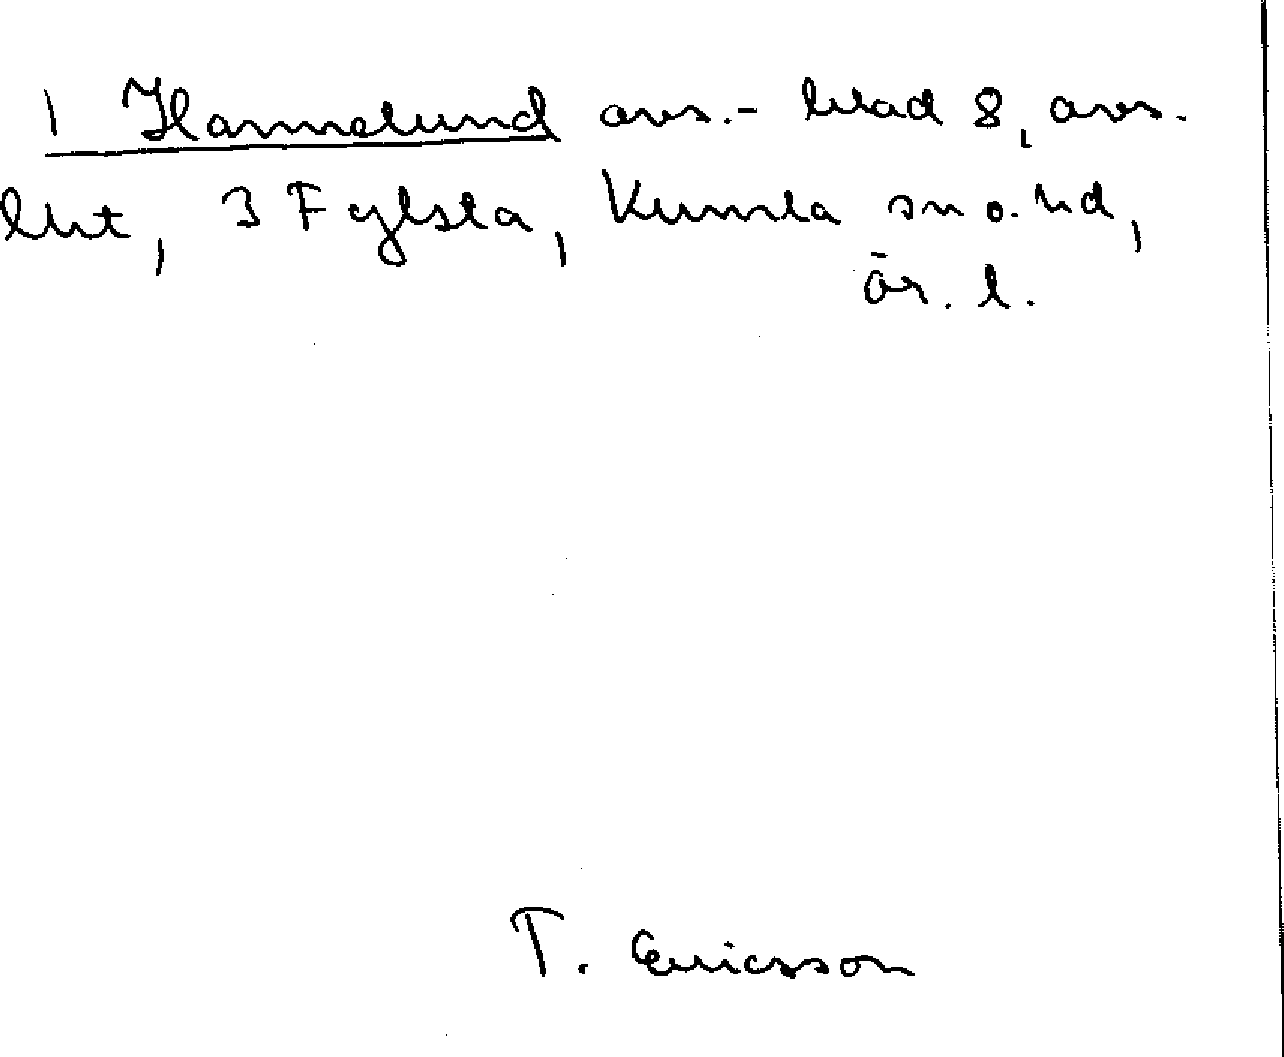 1 Hannelund avs.- blad 8, avs.
lht, 3 Fylsta, Kumla sn o. hd,
är. l.
T. Ericsson